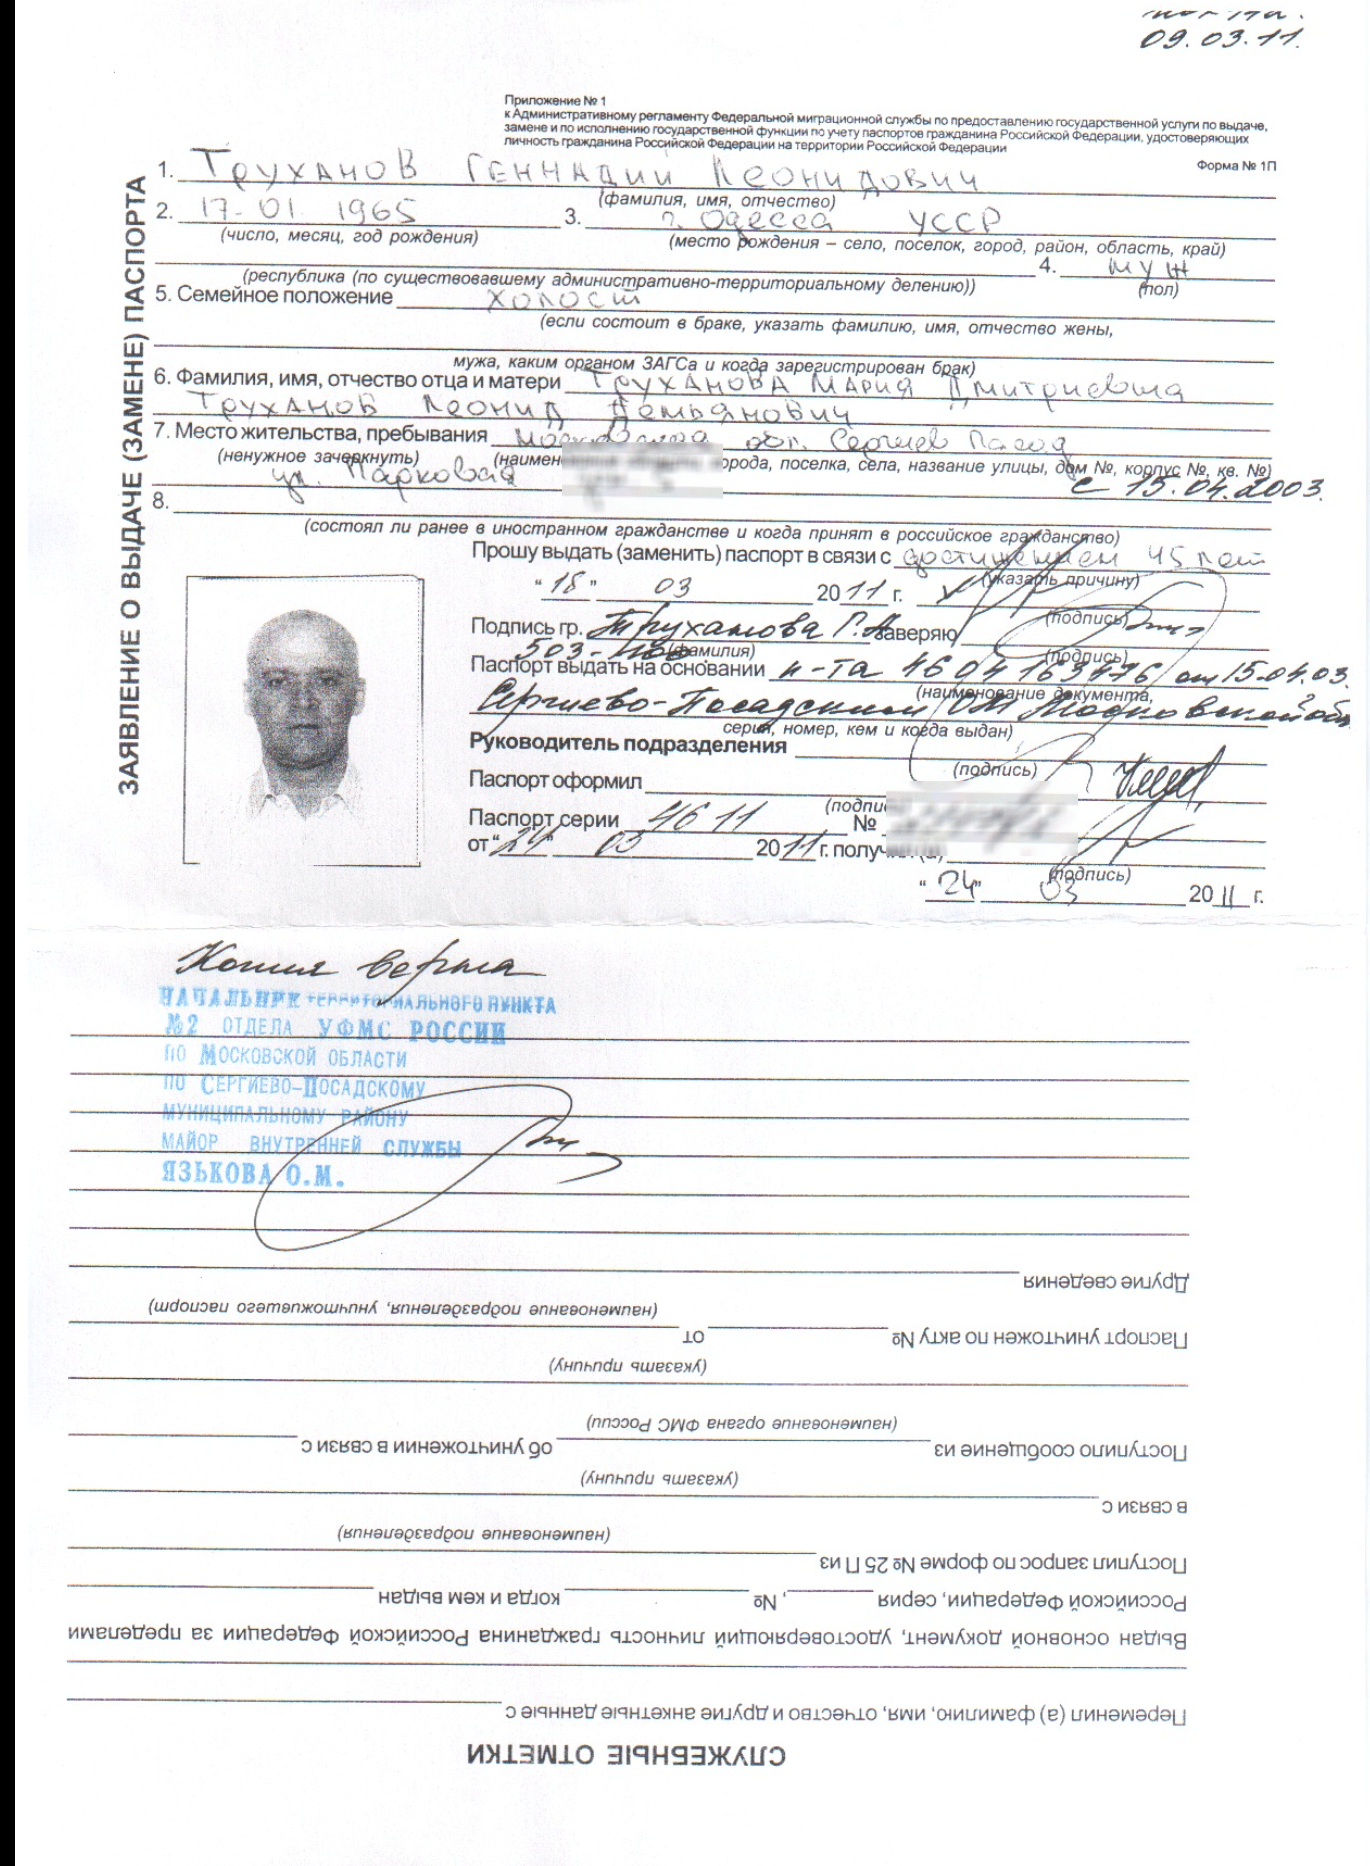 09.03.11.
Приложение № 1
к Административному регламенту Федеральной миграционной службы по предоставлению государственной услуги по выдаче,
замене и по исполнению государственной функции по учету паспортов гражданина Российской Федерации, удостоверяющих
личность гражданина Российской Федерации на территории Российской Федерации
Форма № 1П
ЗАЯВЛЕНИЕ О ВЫДАЧЕ (ЗАМЕНЕ) ПАСПОРТА
1. Труханов Геннадий Леонидович
(фамилия, имя, отчество)
2. 17-01 1965 3. г. Одесса УССР
(число, месяц, год рождения) (место рождения – село, поселок, город, район, область, край)
4. муж
(республика (по существовавшему административно-территориальному делению)) (пол)
5. Семейное положение холост
(если состоит в браке, указать фамилию, имя, отчество жены,
мужа, каким органом ЗАГСа и когда зарегистрирован брак)
6. Фамилия, имя, отчество отца и матери Труханова Мария Дмитриевна
Труханов Леонид Демьянович
7. Место жительства, пребывания Московская обл. Сергиев Посад
(ненужное зачеркнуть) (наимен города, поселка, села, название улицы, дом №, корпус №, кв. №)
ул. Парковая с 15.04.2003.
8.
(состоял ли ранее в иностранном гражданстве и когда принят в российское гражданство)
Прошу выдать (заменить) паспорт в связи с достижением 45 лет
(указать причину)
"18" 03 2011 г.
(подпись)
Подпись гр. Труханова Г.Л. заверяю
(фамилия) (подпись)
503-
Паспорт выдать на основании п-та 46 04 163476 от 15.04.03.
(наименование документа,
Сергиево-Посадским ОМ Московской обл
серия, номер, кем и когда выдан)
Руководитель подразделения
(подпись)
Паспорт оформил
(подпи
Паспорт серии 46 11 №
от "24" 03 2011 г. получ
(подпись)
"24" 03 2011 г.
Копия верна
НАЧАЛЬНИК ТЕРРИТОРИАЛЬНОГО ПУНКТА
№2 ОТДЕЛА УФМС РОССИИ
ПО МОСКОВСКОЙ ОБЛАСТИ
ПО СЕРГИЕВО-ПОСАДСКОМУ
МУНИЦИПАЛЬНОМУ РАЙОНУ
МАЙОР ВНУТРЕННЕЙ СЛУЖБЫ
ЯЗЬКОВА О.М.
СЛУЖЕБНЫЕ ОТМЕТКИ
Переменил (а) фамилию, имя, отчество и другие анкетные данные с
Выдан основной документ, удостоверяющий личность гражданина Российской Федерации за пределами
Российской Федерации, серия , № когда и кем выдан
Поступил запрос по форме № 25 П из
(наименование подразделения)
в связи с
(указать причину)
Поступило сообщение из об уничтожении в связи с
(наименование органа ФМС России)
(указать причину)
Паспорт уничтожен по акту № от
(наименование подразделения, уничтожившего паспорт)
Другие сведения